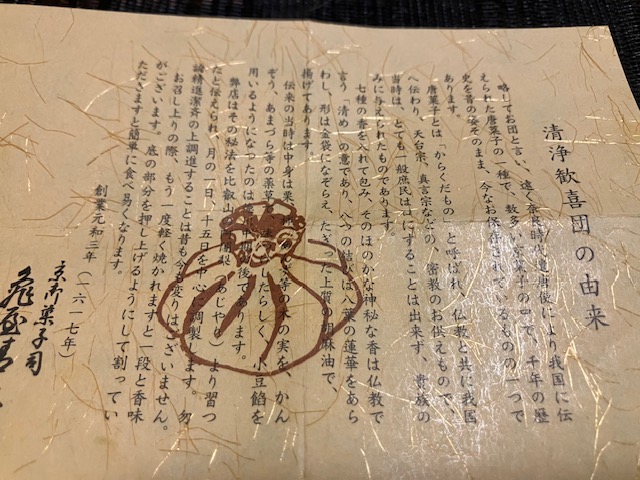 清浄歓喜団の由来
略してお団と言い、遠く奈良時代、遣唐使により我国に伝
えられた唐菓子の一種で、数多い京菓子の中で、千年の歴
史を昔の姿そのまま、今なお保存されているものの一つで
あります。
唐菓子とは「からくだもの」と呼ばれ、仏教と共に我国
へ伝わり、天台宗、真言宗などの、密教のお供えもので、
当時は、とても一般庶民は口にすることは出来ず、貴族の
みに与えられたものであります。
七種の香を入れて包み、そのほのかな神秘な香は仏教で
言う「清め」の意であり、八つの結びは八葉の蓮華をあら
わし、形は金袋になぞらえ、たぎった上質の胡麻油で、
揚げてあります。
伝来の当時は中身は栗、等の木の実を、かん
ぞう、あまづら等の薬草したらしく、小豆餡を
用いるようになったのは後であります。
弊店はその秘法を比叡山（あじゃり）より習っ
たと伝えられ、月の一日、十五日を中心に調製します。勿
論精進潔斎の上調進することは昔も今も変りはございません。
お召し上りの際、もう一度軽く焼かれますと一段と香味
がございます。底の部分を押し上げるようにして割ってい
ただきますと簡単に食べ易くなります。
創業元和三年（一六一七年）
京御菓子司
亀屋清